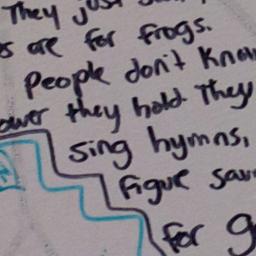 They just
s are for frogs.
People don't know
ower they hold. They
sing hymns,
figue
for g